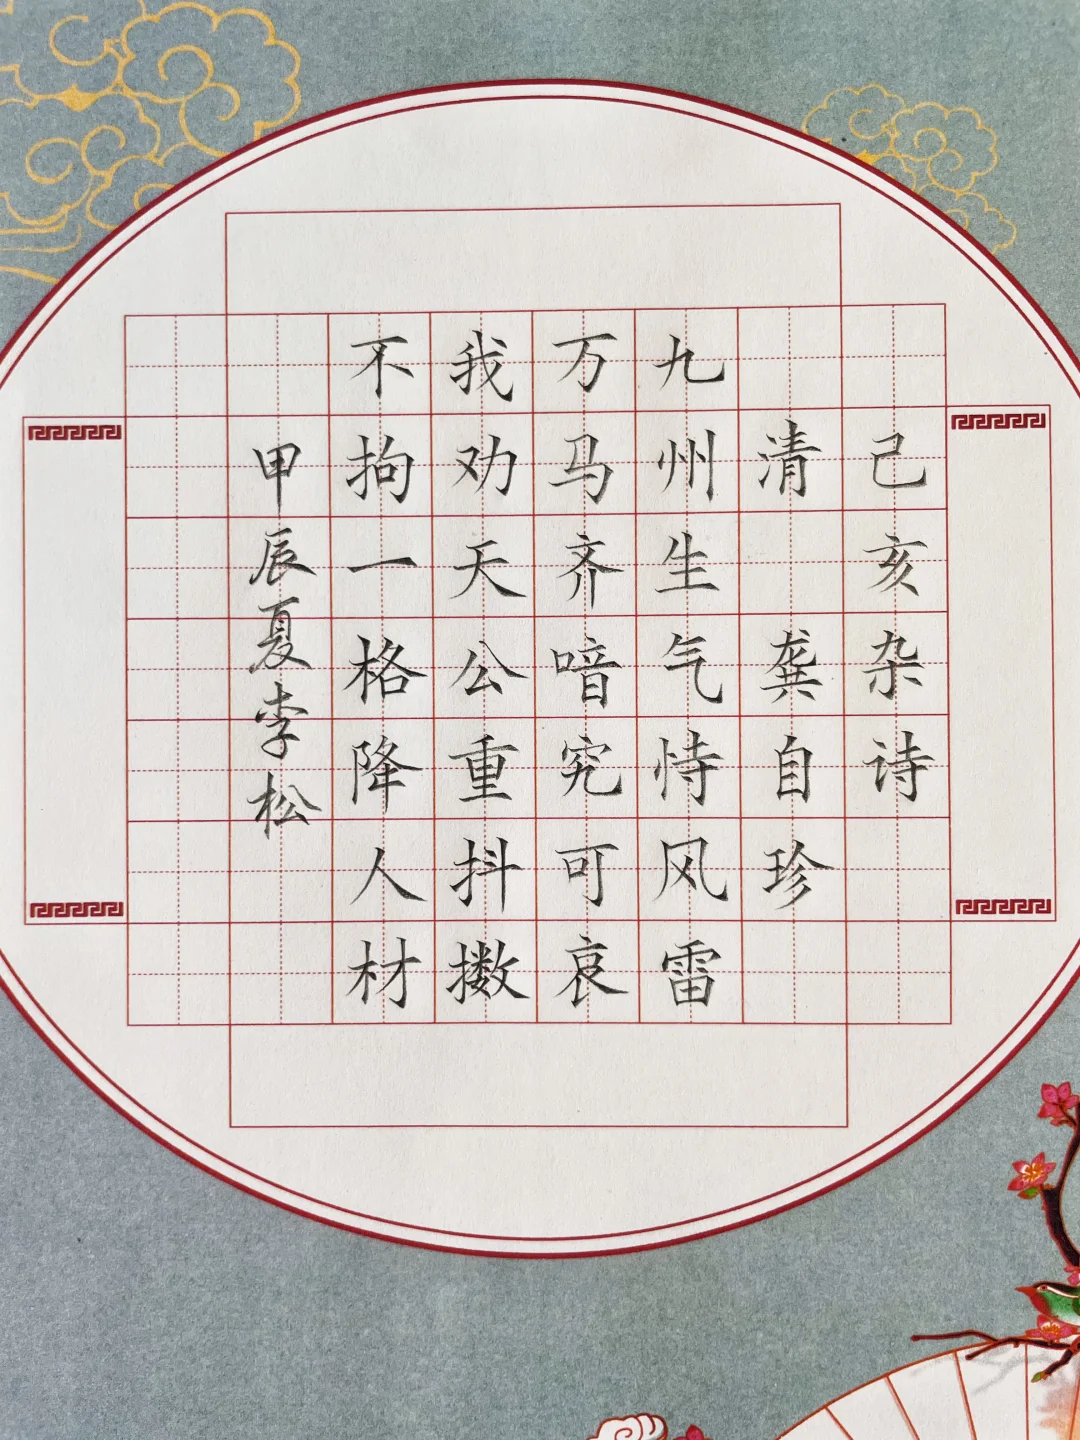 己亥杂诗
清 龚自珍
九州生气恃风雷
万马齐喑究可哀
我劝天公重抖擞
不拘一格降人材
甲辰夏李松